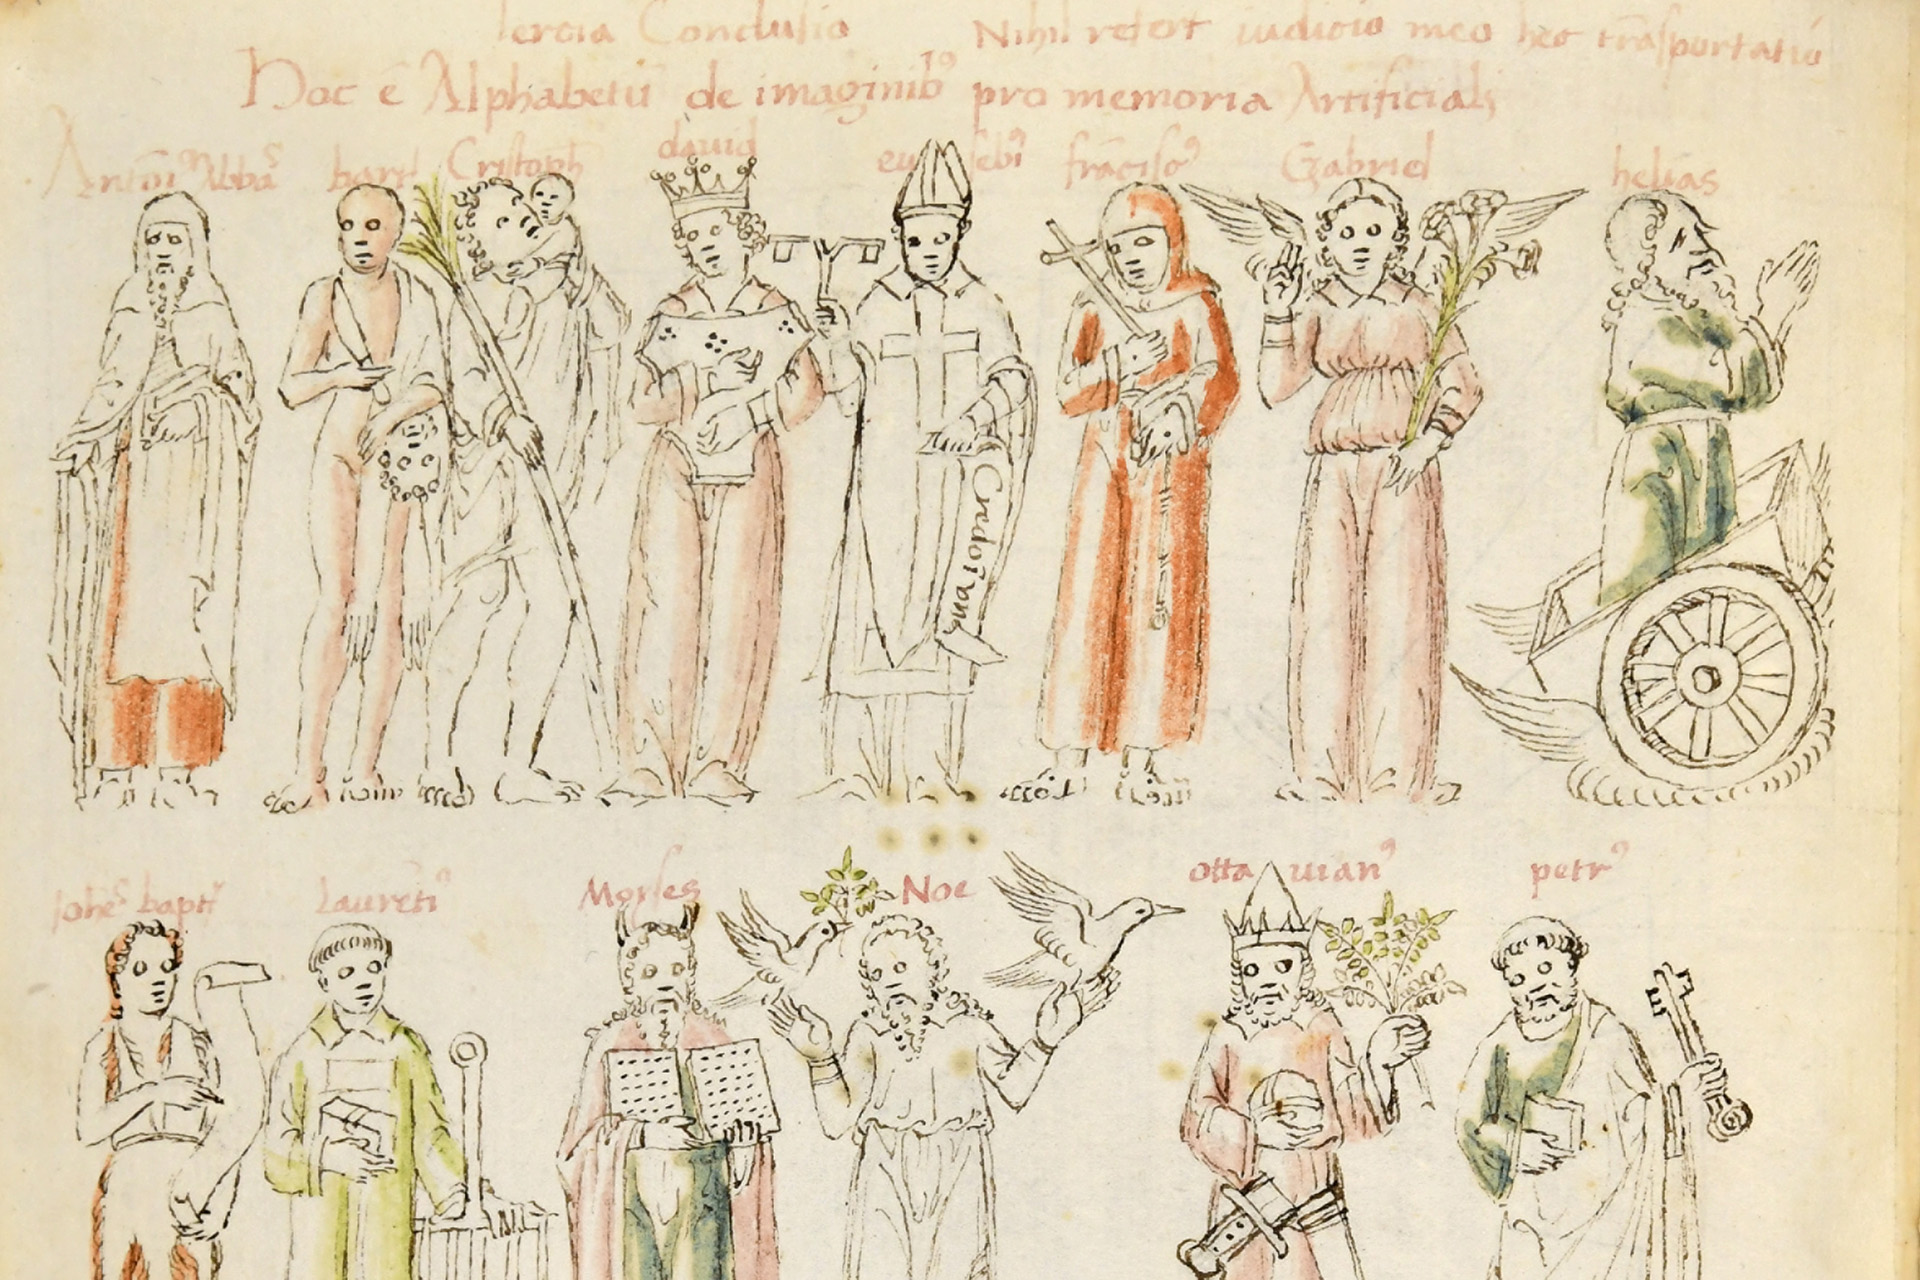 Tercia Conclusio Nihil refert iudicio meo hec trāsportatio
Hoc ē Alphabetū de imaginibꝰ pro memoria Artificiali
Antoniꝰ Abbas bartl Cristoph dauid eusebiꝰ frāciscꝰ Gabriel helias
Credo ī vnū
Iohēs bapt Laurētiꝰ Moyses Noe ottauianꝰ petrꝰ